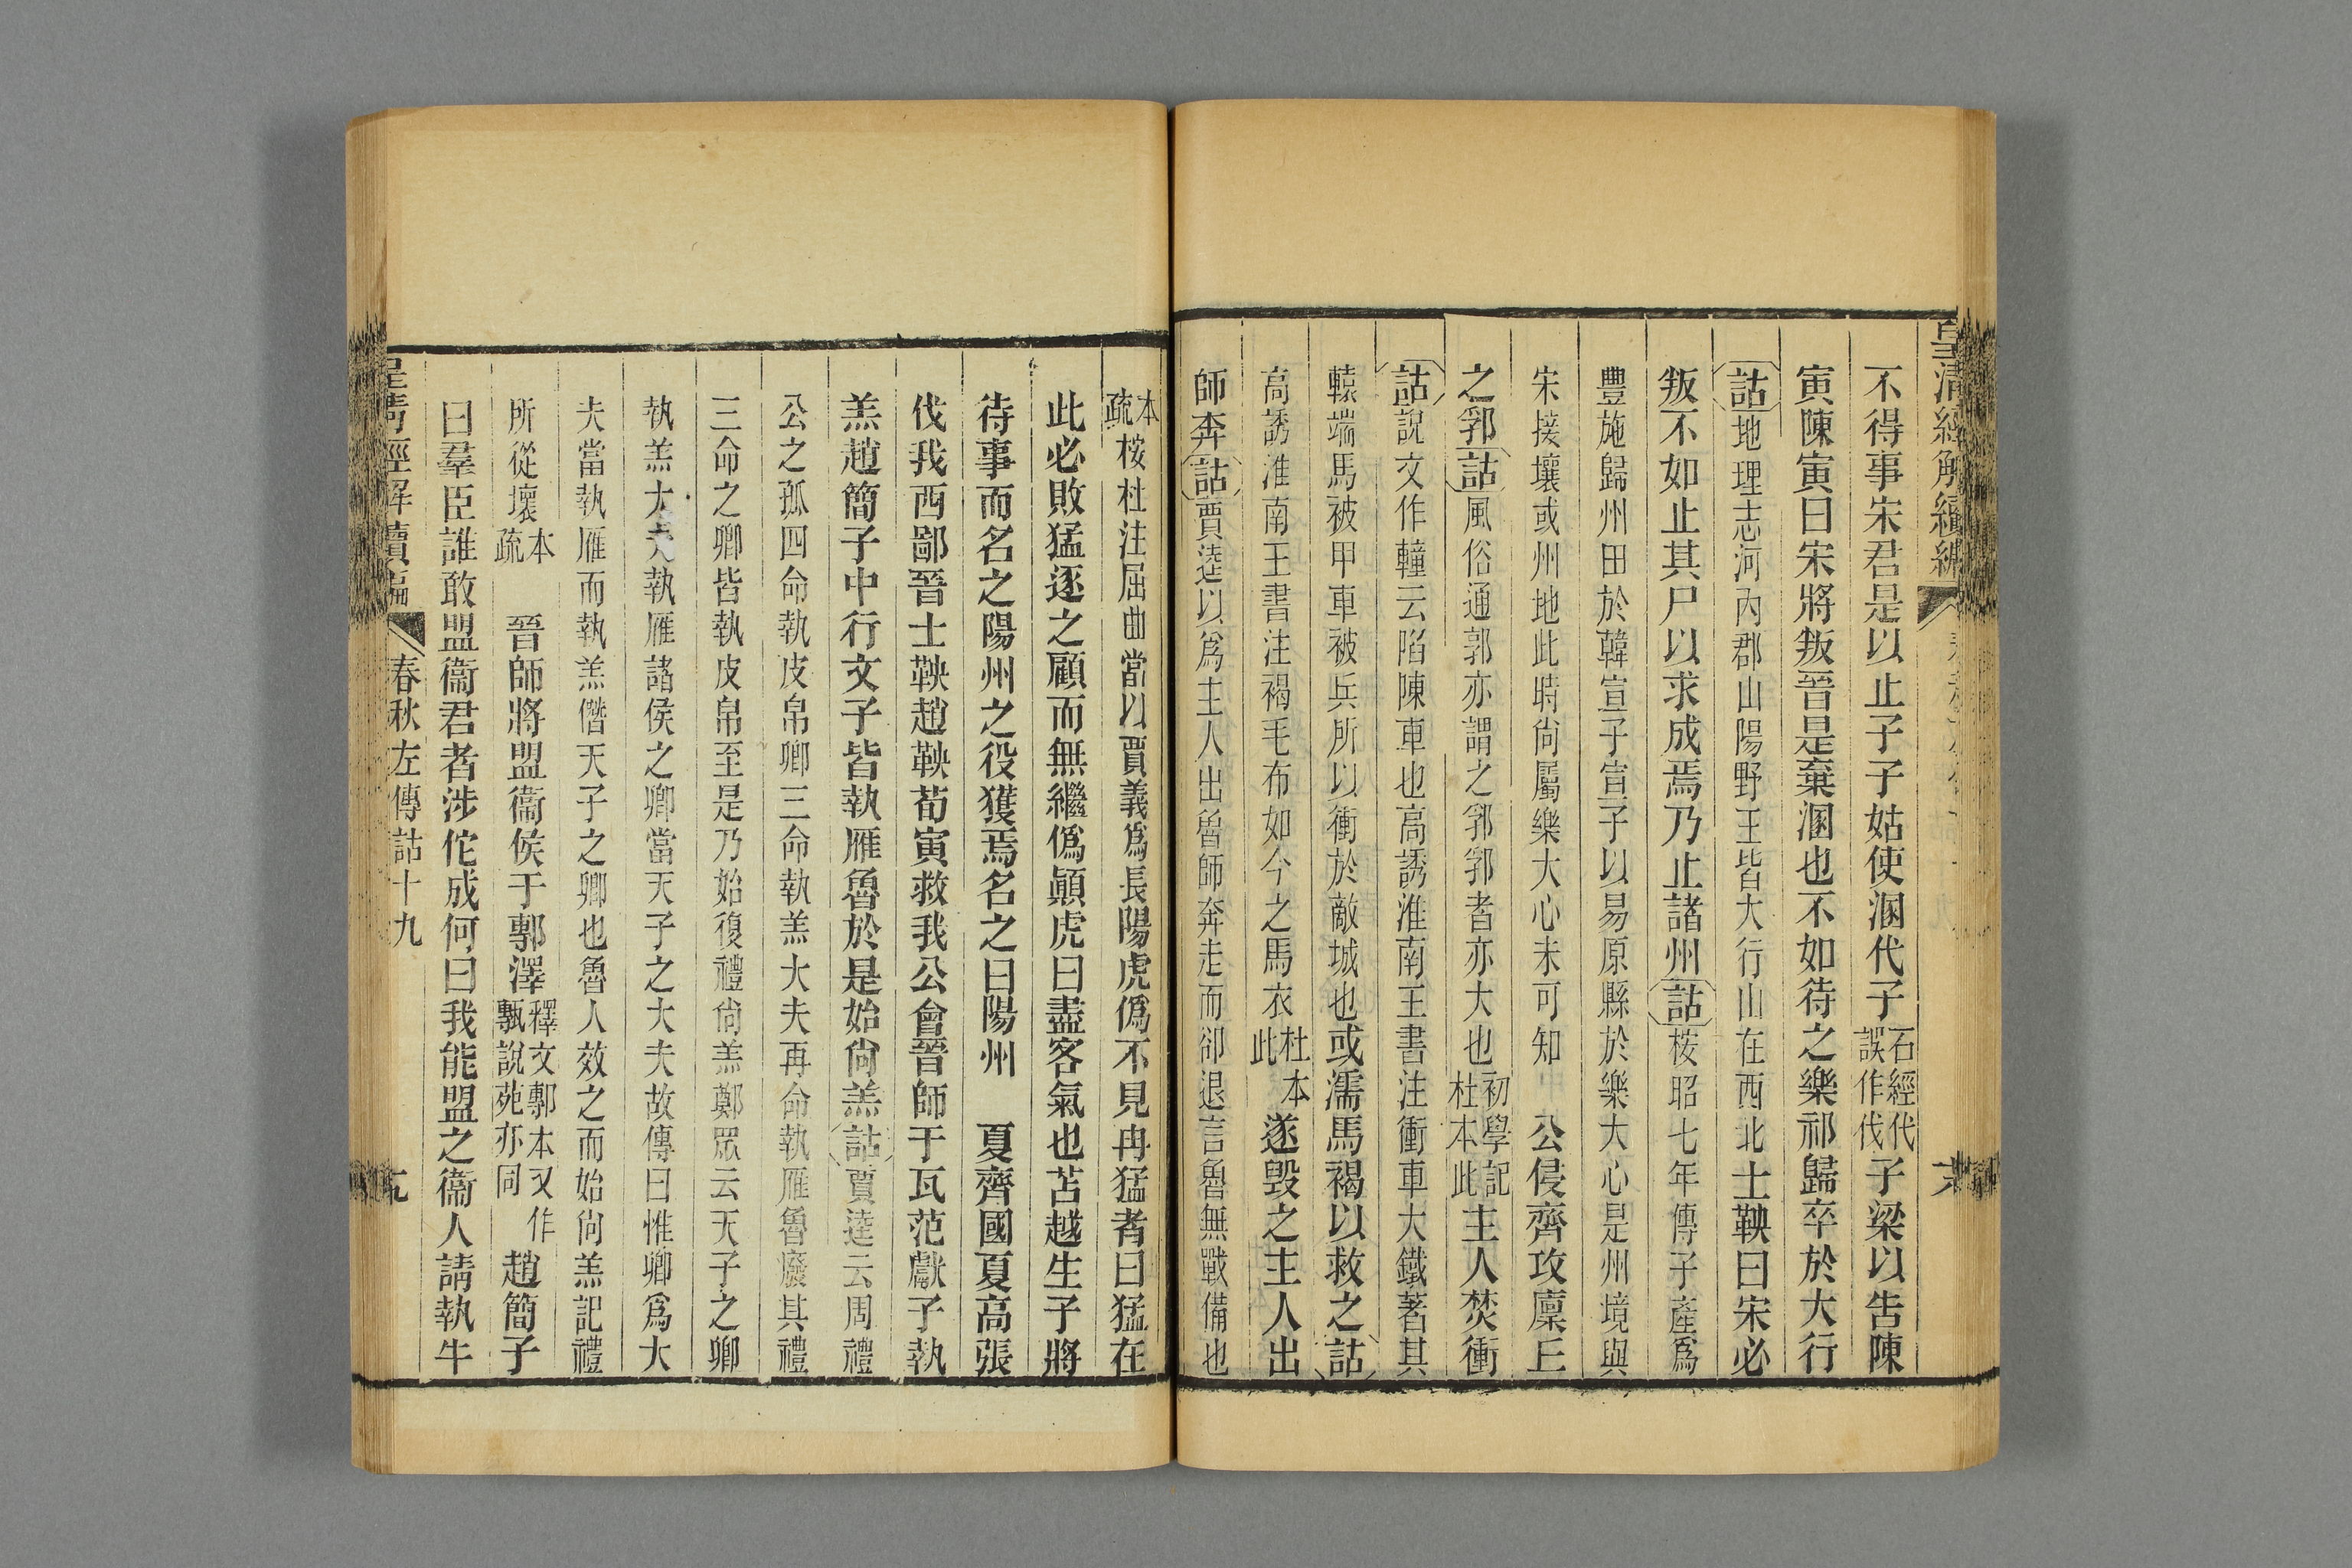 皇清經解續編
不得事宋君是以止子子姑使溷代子石經代誤作伐子梁以吿陳
寅陳寅曰宋將叛晉是棄溷也不如待之樂祁歸卒於大行
詁地理志河內郡山陽野王皆大行山在西北士鞅曰宋必
叛不如止其尸以求成焉乃止諸州詁桉昭七年傳子產爲
豐施歸州田於韓宣子宣子以易原縣於樂大心是州境與
宋接壤或州地此時尙屬樂大心未可知　公侵齊攻廩丘
之郛詁風俗通郭亦謂之郛郛者亦大也初學記杜本此主人焚衝
詁說文作䡴云陷陳車也高誘淮南王書注衝車大鐵著其
轅端馬被甲車被兵所以衝於敵城也或濡馬褐以救之詁
高誘淮南王書注褐毛布如今之馬衣杜本此遂毀之主人出
師奔詁賈逵以爲主人出魯師奔走而卻退言魯無戰備也
本疏桉杜注屈曲當以賈義爲長陽虎僞不見冉猛者曰猛在
此必敗猛逐之顧而無繼僞顚虎曰盡客氣也苫越生子將
待事而名之陽州之役獲焉名之曰陽州　夏齊國夏高張
伐我西鄙晉士鞅趙鞅荀寅救我公會晉師于瓦范獻子執
羔趙簡子中行文子皆執雁魯於是始尙羔詁賈逵云周禮
公之孤四命執皮帛卿三命執羔大夫再命執雁魯廢其禮
三命之卿皆執皮帛至是乃始復禮尙羔鄭眾云天子之卿
執羔大夫執雁諸侯之卿當天子之大夫故傳曰惟卿爲大
夫當執雁而執羔僭天子之卿也魯人效之而始尙羔記禮
所從壞本疏　晉師將盟衞侯于鄟澤釋文鄟本又作㼷說苑亦同趙簡子
曰羣臣誰敢盟衞君者涉佗成何曰我能盟之衞人請執牛
皇清經解續編　春秋左傳詁十九